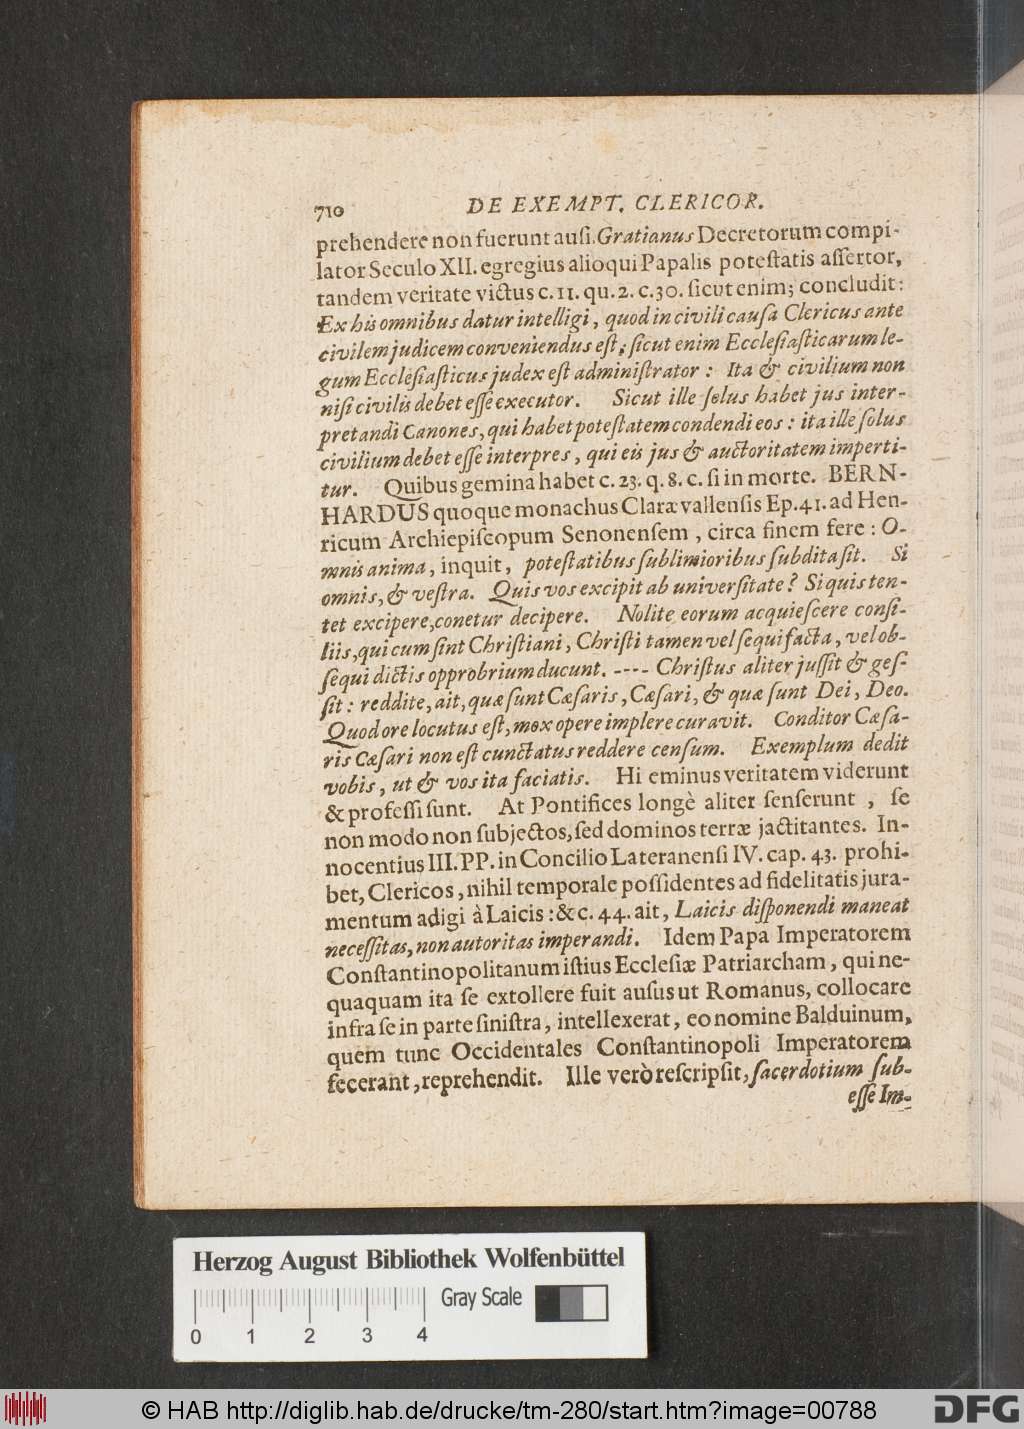 710 DE EXEMPT. CLERICOR.
prehendere non fuerunt ausi. Gratianus Decretorum compi-
lator Seculo XII. egregius alioqui Papalis potestatis assertor,
tandem veritate victus c. 11. qu. 2. c. 30. sicut enim; concludit:
Ex his omnibus datur intelligi, quod in civili causa Clericus ante
civilem judicem conveniendus est; sicut enim Ecclesiasticarum le-
gum Ecclesiasticus judex est administrator: Ita & civilium non
nisi civilis debet esse executor. Sicut ille solus habet jus inter-
pretandi Canones, qui habet potestatem condendi eos: ita ille solus
civilium debet esse interpres, qui eis jus & auctoritatem imperti-
tur. Quibus gemina habet c. 23. q. 8. c. si in morte. BERN-
HARDUS quoque monachus Claræ vallensis Ep. 41. ad Hen-
ricum Archiepiscopum Senonensem, circa finem fere: O-
mnis anima, inquit, potestatibus sublimioribus subdita sit. Si
omnis, & vestra. Quis vos excipit ab universitate? Si quis ten-
tet excipere, conetur decipere. Nolite eorum acquiescere consi-
liis, qui cum sint Christiani, Christi tamen vel sequi facta, vel ob-
sequi dictis opprobrium ducunt. ---- Christus aliter jussit & ges-
sit: reddite, ait, quæ sunt Cæsaris, Cæsari, & quæ sunt Dei, Deo.
Quod ore locutus est, mox opere implere curavit. Conditor Cæsa-
ris Cæsari non est cunctatus reddere censum. Exemplum dedit
vobis, ut & vos ita faciatis. Hi eminus veritatem viderunt
& professi sunt. At Pontifices longè aliter senserunt, se
non modo non subjectos, sed dominos terræ jactitantes. In-
nocentius III. PP. in Concilio Lateranensi IV. cap. 43. prohi-
bet, Clericos, nihil temporale possidentes ad fidelitatis jura-
mentum adigi à Laicis: & c. 44. ait, Laicis disponendi maneat
necessitas, non autoritas imperandi. Idem Papa Imperatorem
Constantinopolitanum istius Ecclesiæ Patriarcham, qui ne-
quaquam ita se extollere fuit ausus ut Romanus, collocare
infra se in parte sinistra, intellexerat, eo nomine Balduinum,
quem tunc Occidentales Constantinopoli Imperatorem
fecerant, reprehendit. Ille verò rescripsit, sacerdotium sub-
esse Im-
Herzog August Bibliothek Wolfenbüttel
Gray Scale
0 1 2 3 4
© HAB http://diglib.hab.de/drucke/tm-280/start.htm?image=00788
DFG